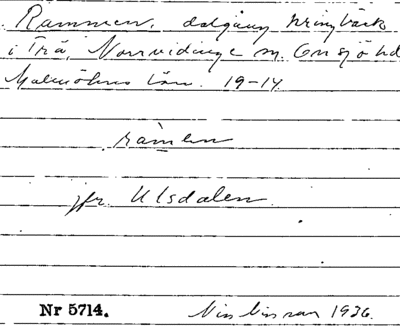 Rammen, dalgång kring bäck
i Trä, Norrvidinge sn. Onsjö hd
Malmöhus län. 19-14
ramen
jfr. Ulsdalen
Nr 5714. 1936.